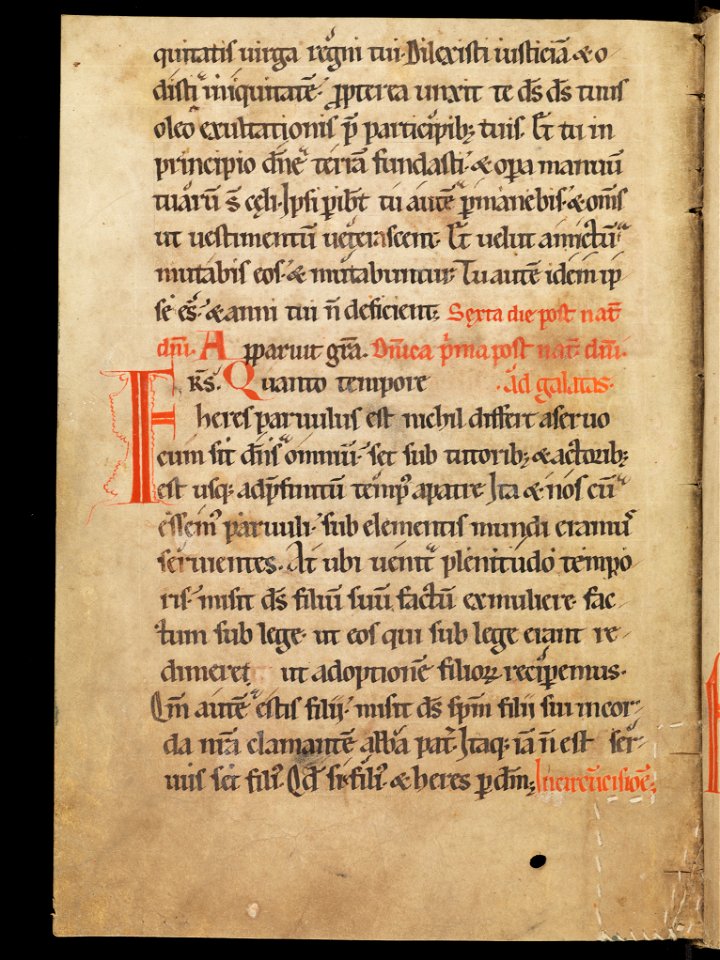 quitatis uirga regni tui. Dilexisti iusticiā & o
disti iniquitatē. ꝓpterea unxit te d̄s d̄s tuus
oleo exultationis p̄ participibꝫ tuis. Et tu in
principio dn̄e terrā fundasti. & oꝑa manuū
tuarū s̄ cęli. Ipsi ꝑibt̄ tu autē ꝑmanebis. & om̄s
ut uestimentū ueterascent. Et uelut amictū
mutabis eos. & mutabuntur. Tu autē idem ip
se es. & anni tui n̄ deficient. Sexta die post nat̄
dn̄i. Apparuit gr̄a. Dn̄ica p̄ma post nat̄ dn̄i.
F Rs̄. Quanto tempore ad galatas.
heres paruulus est nichil differt aseruo
cum sit dn̄s omniū. set sub tutoribꝫ & actoribꝫ
est usqꝫ adp̄finitū tempꝰ apatre Ita & nos cū
essemꝰ paruuli. sub elementis mundi eramꝰ
seruientes. At ubi uenit plenitudo tempo
ris. misit d̄s filiū suū factū exmuliere fac
tum sub lege. ut eos qui sub lege erant re
dimeret ut adoptionē filioꝝ reciperemus.
Qm̄ autē estis filii. misit d̄s sp̄m filii sui incor
da nr̄a clamantē abba pat̄. Itaqꝫ iā n̄ est ser
uus set filiꝰ. Qd̄ si filiꝰ. & heres ꝑ dm̄. Incircūcisiōe.